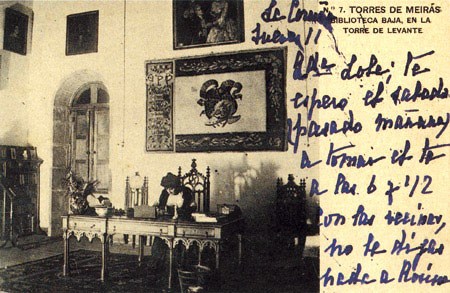 Nº 7. TORRES DE MEIRÁS
BIBLIOTECA BAJA, EN LA
TORRE DE LEVANTE
La Coruña
Jueves 11
Lola; te
espero el sabado
(pasado mañana)
a tomar el te
a las 6 y 1/2
con las
no te digas
nada a